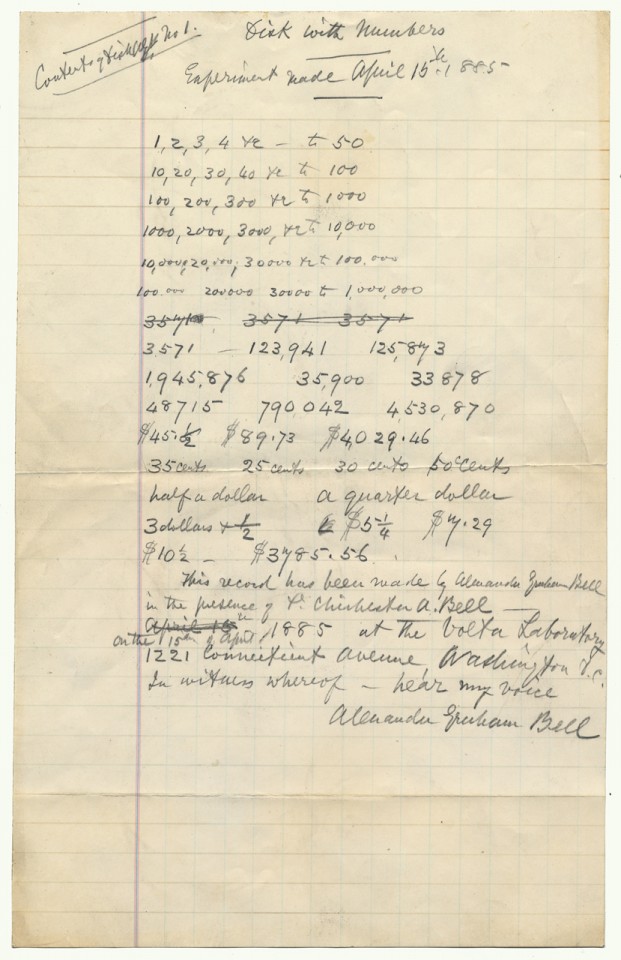 Contents of Disk No 1.
Disk with Numbers
Experiment made April 15th 1885
1, 2, 3, 4 &c — to 50
10, 20, 30, 40 &c to 100
100, 200, 300 &c to 1000
1000, 2000, 3000, &c to 10,000
10,000, 20,000, 30000 &c to 100.000
100.000 200000 30000 to 1,000,000
3571 3571 3571
3,571 — 123,941 125,873
1,945,876 35,900 33878
48715 790042 4,530,870
$45.½ $89.73 $4,029.46
35 cents 25 cents 30 cents 50 cents
half a dollar a quarter dollar
3 dollars + ½ $5¼ $7.29
$10½ — $3785.56.
This record has been made by Alexander Graham Bell
in the presence of Dr. Chichester A. Bell —
on the 15th of April, 1885 at the Volta Laboratory
1221 Connecticut Avenue, Washington D.C.
In witness whereof — hear my voice
Alexander Graham Bell